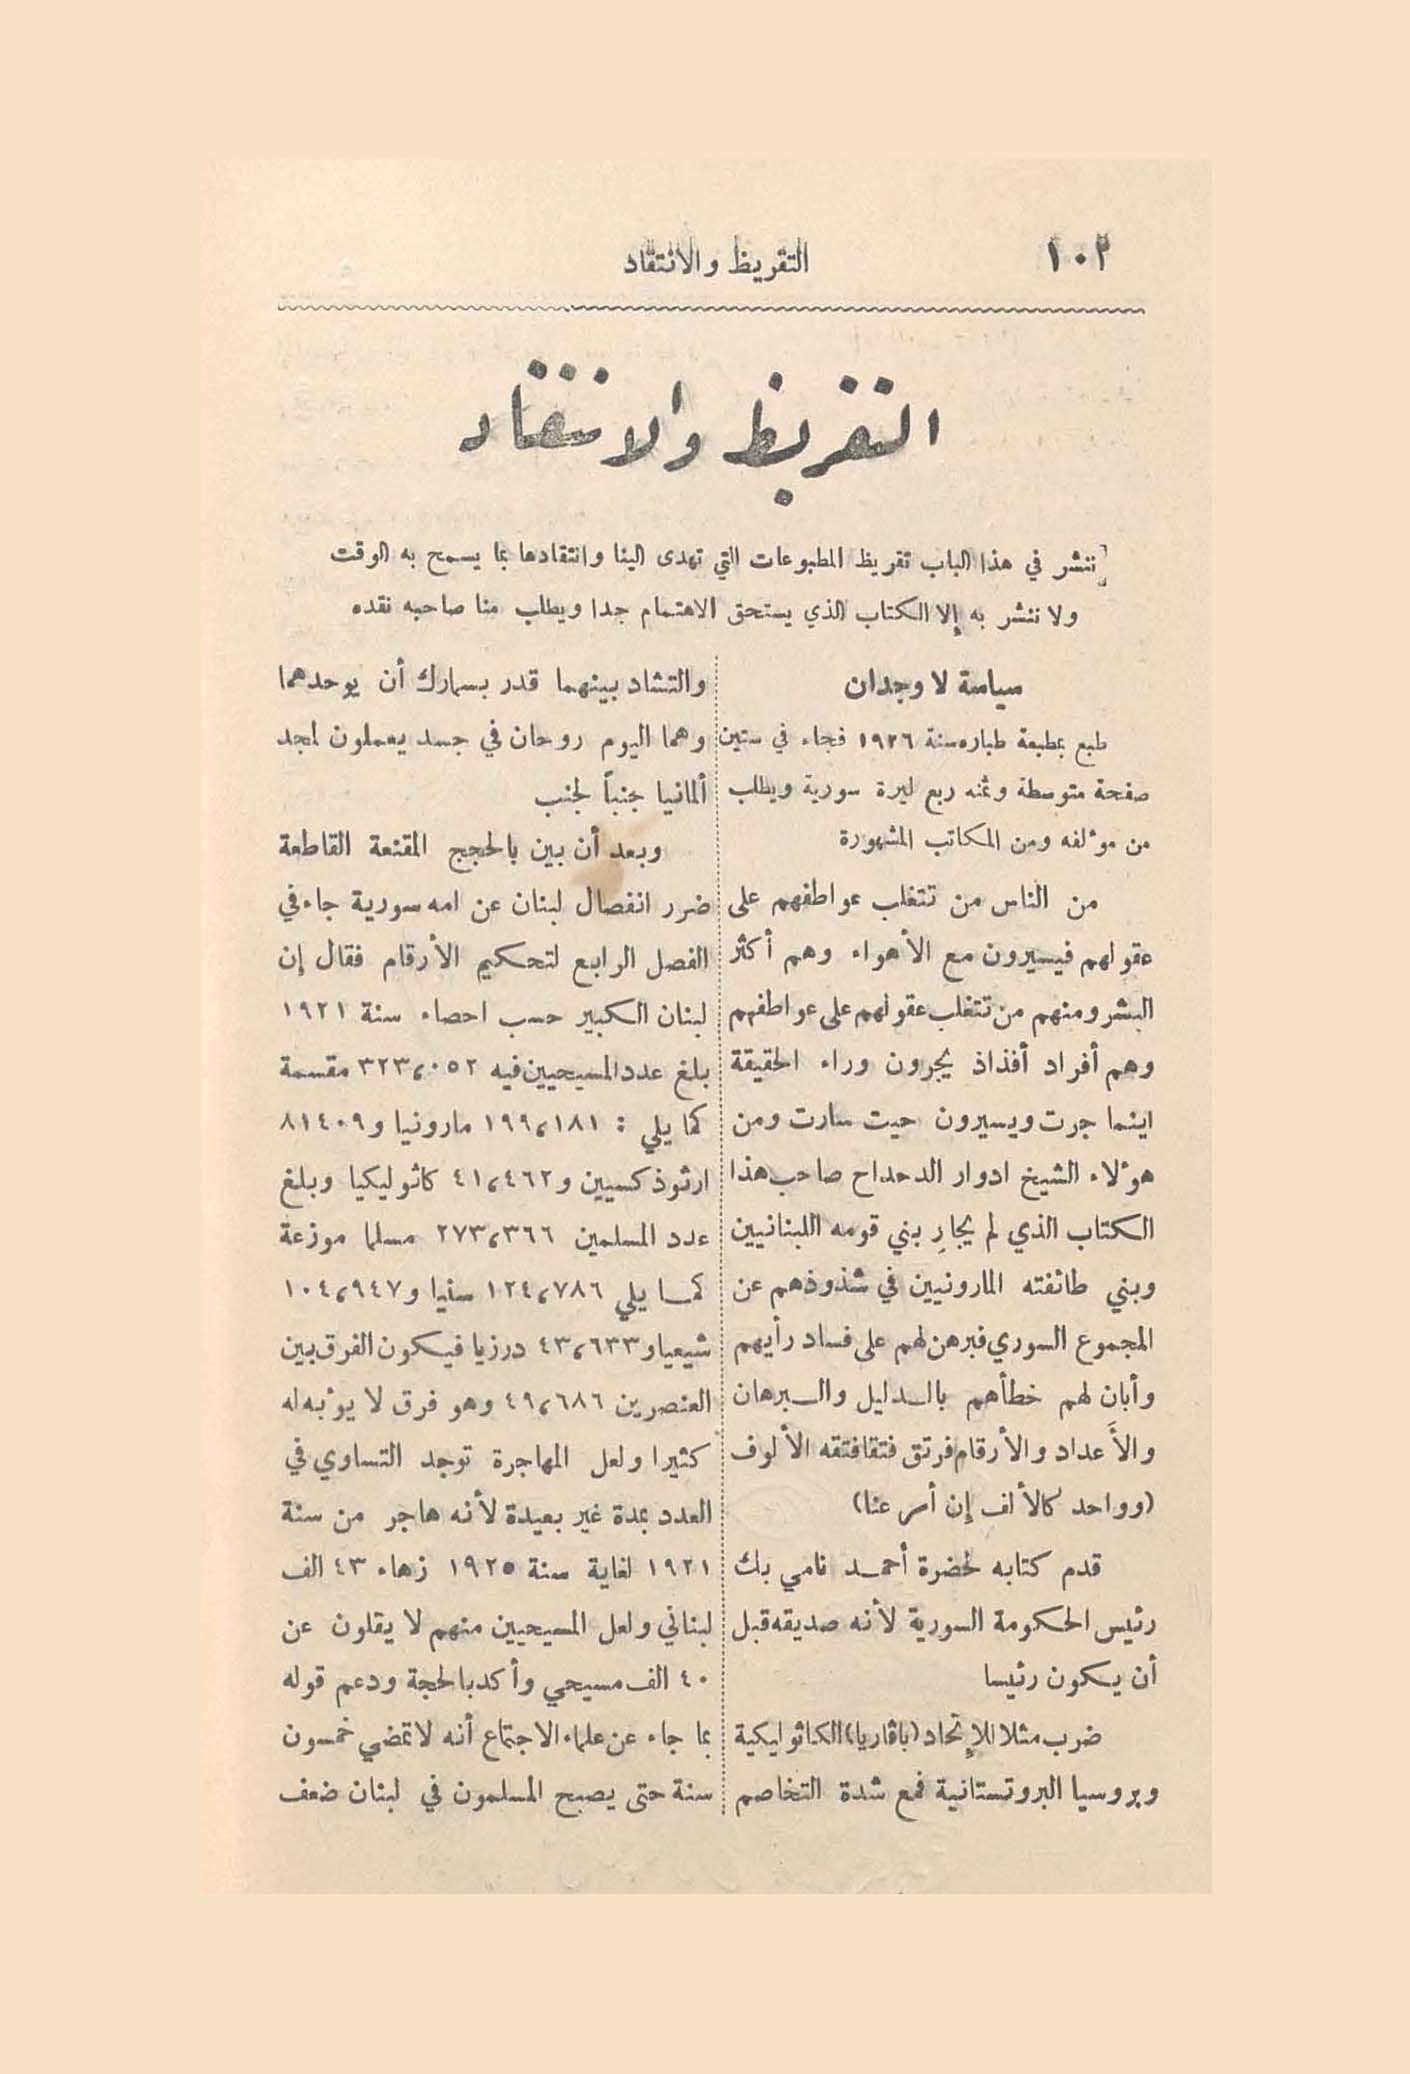 ١٠٢
التقريظ والانتقاد
التقريظ والانتقاد
ننشر في هذا الباب تقريظ المطبوعات التي تهدى الينا وانتقادها بما يسمح به الوقت
ولا ننشر به إلا الكتاب الذي يستحق الاهتمام جدا ويطلب منا صاحبه نقده
سياسة لا وجدان
طبع بمطبعة طباره سنة ١٩٢٦ فجاء في ستين
صفحة متوسطة وثمنه ربع ليرة سورية ويطلب
من مؤلفه ومن المكاتب المشهورة
من الناس من تتغلب عواطفهم على
عقولهم فيسيرون مع الأهواء وهم أكثر
البشر ومنهم من تتغلب عقولهم على عواطفهم
وهم أفراد أفذاذ يجرون وراء الحقيقة
اينما جرت ويسيرون حيث سارت ومن
هؤلاء الشيخ ادوار الدحداح صاحب هذا
الكتاب الذي لم يجارِ بني قومه اللبنانيين
وبني طائفته المارونيين في شذوذهم عن
المجموع السوري فبرهن لهم على فساد رأيهم
وأبان لهم خطأهم بالدليل والبرهان
والأَعداد والأرقام فرتق فتقا فتقه الألوف
(وواحد كالألف إن أمر عنا)
قدم كتابه لحضرة أحمد نامي بك
رئيس الحكومة السورية لأنه صديقه قبل
أن يكون رئيسا
ضرب مثلا للإتحاد (باڤاريا) الكاثوليكية
وبروسيا البروتستانية فمع شدة التخاصم
والتشاد بينهما قدر بسمارك أن يوحدهما
وهما اليوم روحان في جسد يعملون لمجد
ألمانيا جنباً لجنب
وبعد أن بين بالحجج المقنعة القاطعة
ضرر انفصال لبنان عن امه سورية جاء في
الفصل الرابع لتحكيم الأرقام فقال إن
لبنان الكبير حسب احصاء سنة ١٩٢١
بلغ عدد المسيحيين فيه ٣٢٣،٠٥٢ مقسمة
كما يلي : ١٩٩،١٨١ مارونيا و٨١٤٠٩
ارثوذكسيين و٤١،٤٦٢ كاثوليكيا وبلغ
عدد المسلمين ٢٧٣،٣٦٦ مسلما موزعة
كما يلي ١٢٤،٧٨٦ سنيا و١٠٤،٩٤٧
شيعيا و٤٣،٦٣٣ درزيا فيكون الفرق بين
العنصرين ٤٩،٦٨٦ وهو فرق لا يؤبه له
كثيرا ولعل المهاجرة توجد التساوي في
العدد بمدة غير بعيدة لأنه هاجر من سنة
١٩٢١ لغاية سنة ١٩٢٥ زهاء ٤٣ الف
لبناني ولعل المسيحيين منهم لا يقلون عن
٤٠ الف مسيحي وأكد بالحجة ودعم قوله
بما جاء عن علماء الاجتماع أنه لا تمضي خمسون
سنة حتى يصبح المسلمون في لبنان ضعف